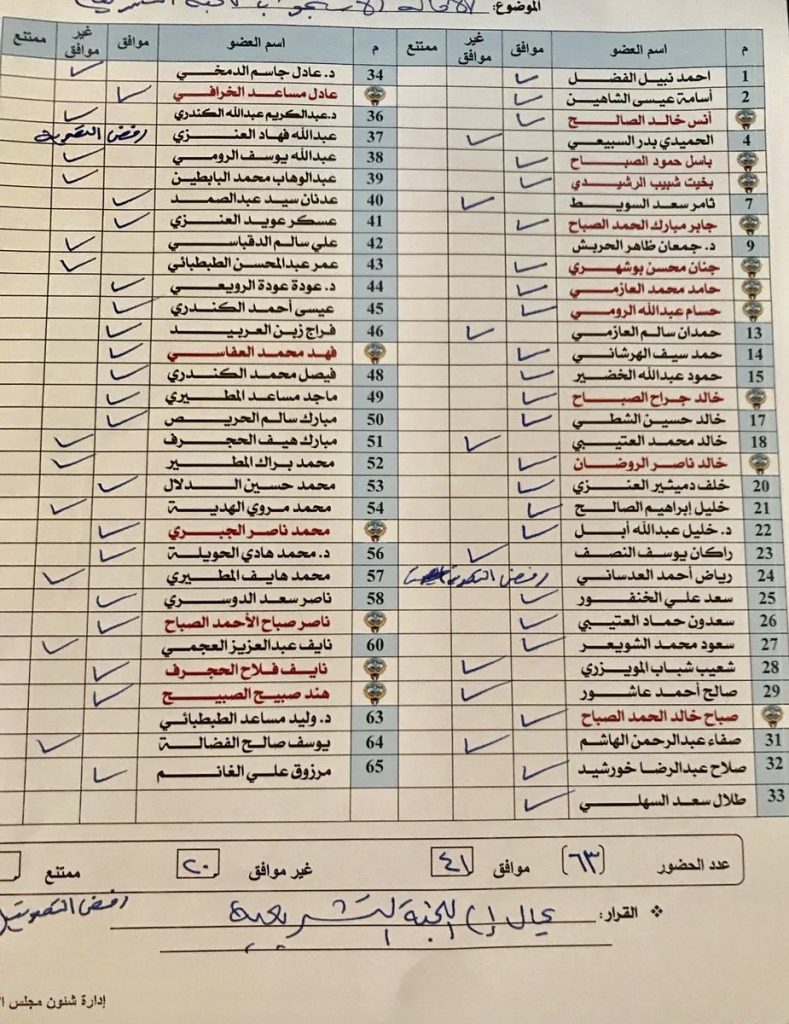 الموضوع: الإحالة الاستجواب للجنة التشريعية
م اسم العضو موافق غير موافق ممتنع
1 احمد نبيل الفضل ✓
2 أسامة عيسى الشاهين ✓
أنس خالد الصالح ✓
4 الحميدي بدر السبيعي ✓
باسل حمود الصباح ✓
بخيت شبيب الرشيدي ✓
7 ثامر سعد السويط ✓
جابر مبارك الحمد الصباح ✓
9 د. جمعان ظاهر الحربش
جنان محسن بوشهري ✓
حامد محمد العازمي ✓
حسام عبدالله الرومي ✓
13 حمدان سالم العازمي ✓
14 حمد سيف الهرشاني ✓
15 حمود عبدالله الخضير ✓
خالد جراح الصباح ✓
17 خالد حسين الشطي ✓
18 خالد محمد العتيبي ✓
خالد ناصر الروضان ✓
20 خلف دميثير العنزي ✓
21 خليل إبراهيم الصالح ✓
22 د. خليل عبدالله أبل ✓
23 راكان يوسف النصف ✓
24 رياض أحمد العدساني رفض التصويت
25 سعد علي الخنفور ✓
26 سعدون حماد العتيبي ✓
27 سعود محمد الشويعر ✓
28 شعيب شباب المويزري ✓
29 صالح أحمد عاشور ✓
صباح خالد الحمد الصباح ✓
31 صفاء عبدالرحمن الهاشم ✓
32 صلاح عبدالرضا خورشيد ✓
33 طلال سعد السهلي ✓
م اسم العضو موافق غير موافق ممتنع
34 د. عادل جاسم الدمخي ✓
عادل مساعد الخرافي ✓
36 د.عبدالكريم عبدالله الكندري ✓
37 عبدالله فهاد العنزي رفض التصويت
38 عبدالله يوسف الرومي ✓
39 عبدالوهاب محمد البابطين ✓
40 عدنان سيد عبدالصمد ✓
41 عسكر عويد العنزي ✓
42 علي سالم الدقباسي ✓
43 عمر عبدالمحسن الطبطبائي ✓
44 د. عودة عودة الرويعي ✓
45 عيسى أحمد الكندري ✓
46 فراج زبن العربيد ✓
فهد محمد العفاسي ✓
48 فيصل محمد الكندري ✓
49 ماجد مساعد المطيري ✓
50 مبارك سالم الحريص ✓
51 مبارك هيف الحجرف ✓
52 محمد براك المطير ✓
53 محمد حسين الدلال ✓
54 محمد مروي الهدية ✓
محمد ناصر الجبري ✓
56 د. محمد هادي الحويلة ✓
57 محمد هايف المطيري ✓
58 ناصر سعد الدوسري ✓
ناصر صباح الأحمد الصباح ✓
60 نايف عبدالعزيز العجمي ✓
نايف فلاح الحجرف ✓
هند صبيح الصبيح ✓
63 د. وليد مساعد الطبطبائي
64 يوسف صالح الفضالة ✓
65 مرزوق علي الغانم ✓
عدد الحضور (٦٣) موافق ٤١ غير موافق ٢٠ ممتنع
❖ القرار: يحال إلى اللجنة التشريعية رفض التصويت
إدارة شئون مجلس